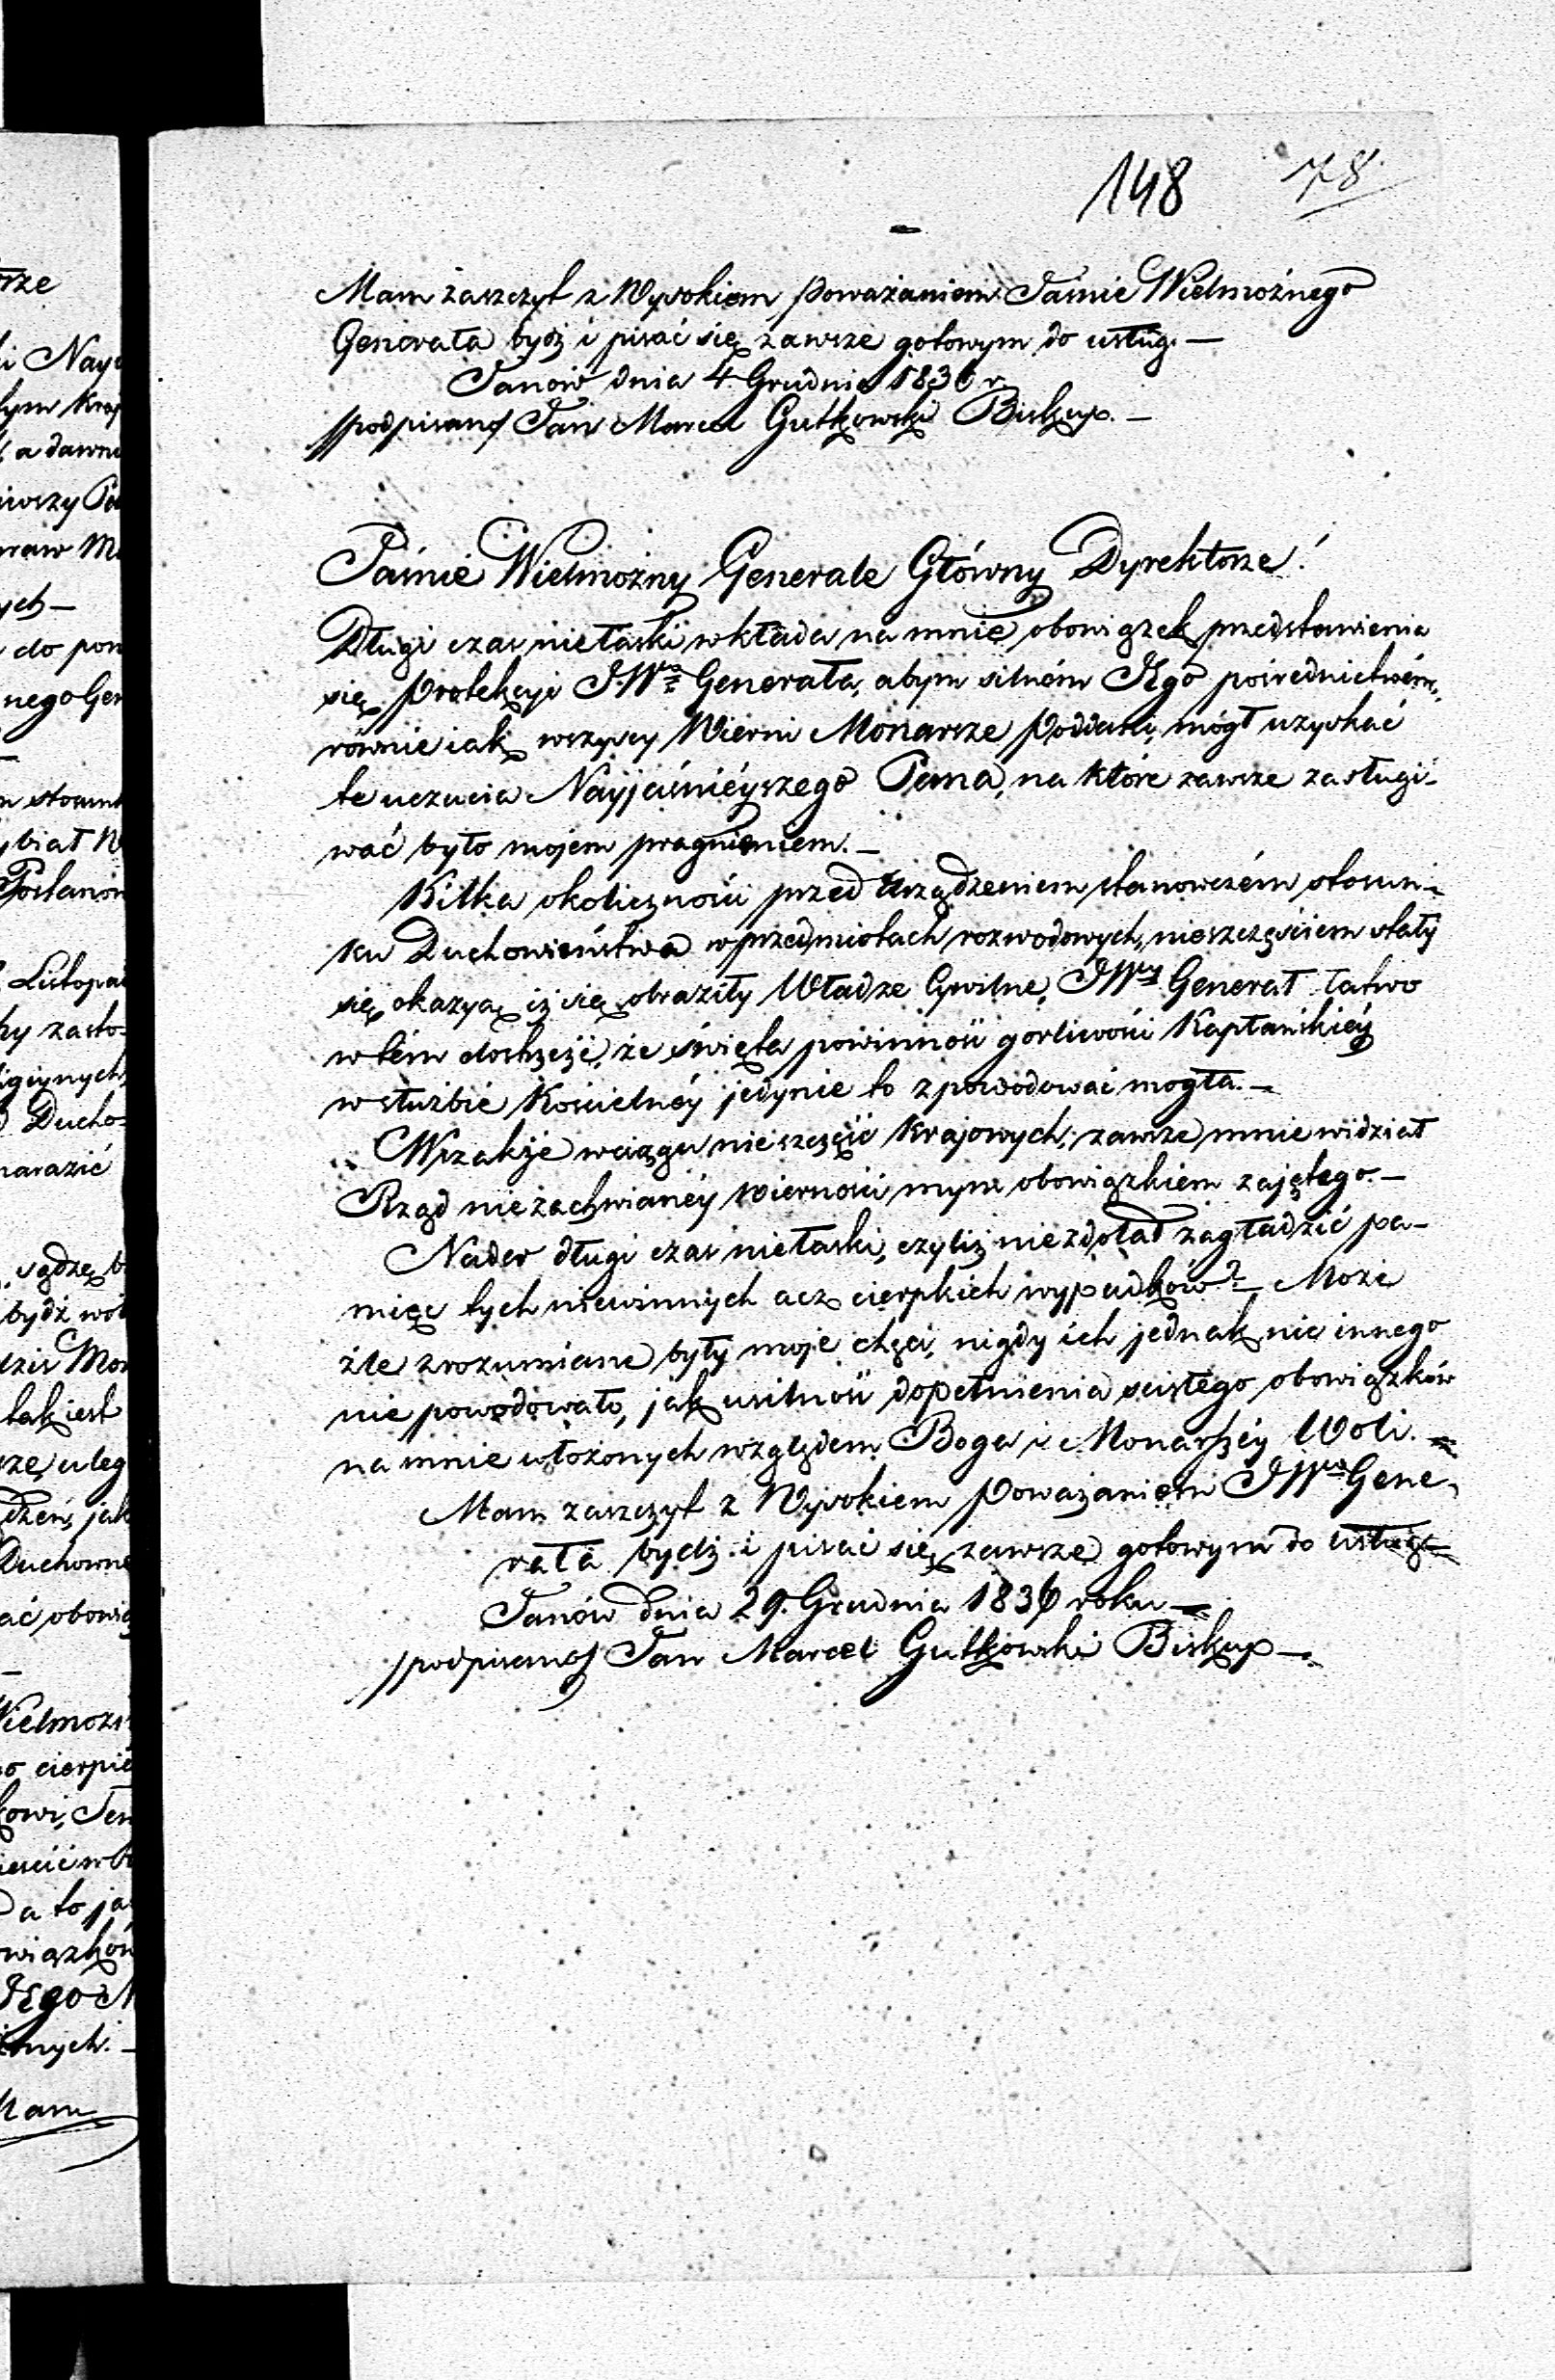 148 78.
Mam zaszczyt z Wysokiem Poważaniem Jaśnie Wielmożnego
Generała bydź i pisać się zawsze gotowym do usług. —
Janów dnia 4. Grudnia 1836 r.
/podpisany/ Jan Marcel Gutkowski Biskup. —
Jaśnie Wielmożny Generale Główny Dyrektorze!
Długi czas niełaski wkłada na mnie obowiązek przedstawienia
się Protekcyi J.Wo Generała, abym silném Jego pośrednictwém,
równie iak wszyscy Wierni Monarsze Poddani, mógł uzyskać
te uczucia Nayjaśnieyszego Pana, na które zawsze zasługi-
wać było mojem pragnieniem. —
Kilka okoliczności przed urządzeniem stanowczém stosun-
ku Duchowieństwa w przedmiotach rozwodowych, nieszczęściem stały
się okazyą iż się obraziły Władze Cywilne, JWny Generał łatwo
w tém dostrzeże, że święta powinność gorliwości Kapłańskiéy
w służbie Kościelnéy jedynie to zpowodować mogła. —
Wszakże w ciągu nieszczęść Krajowych, zawsze mnie widział
Rząd niezachwianéy wierności mym obowiązkiem zajętego. —
Nader długi czas niełaski, czyliż nie zdołał zagładzić pa-
mięc tych niewinnych acz cierpkich wypadków? — Może
źle zrozumiane były moje chęci, nigdy ich jednak nic innego
nie powodowało, jak usilność dopełnienia scisłego obowiązków
na mnie włożonych względem Boga i Monarszéy Woli. —
Mam zaszczyt z Wysokiem Poważaniem JWo Gene-
rała bydź i pisać się zawsze gotowym do usług —
Janów dnia 29. Grudnia 1836 roku —
/podpisany/ Jan Marcel Gutkowski Biskup —.